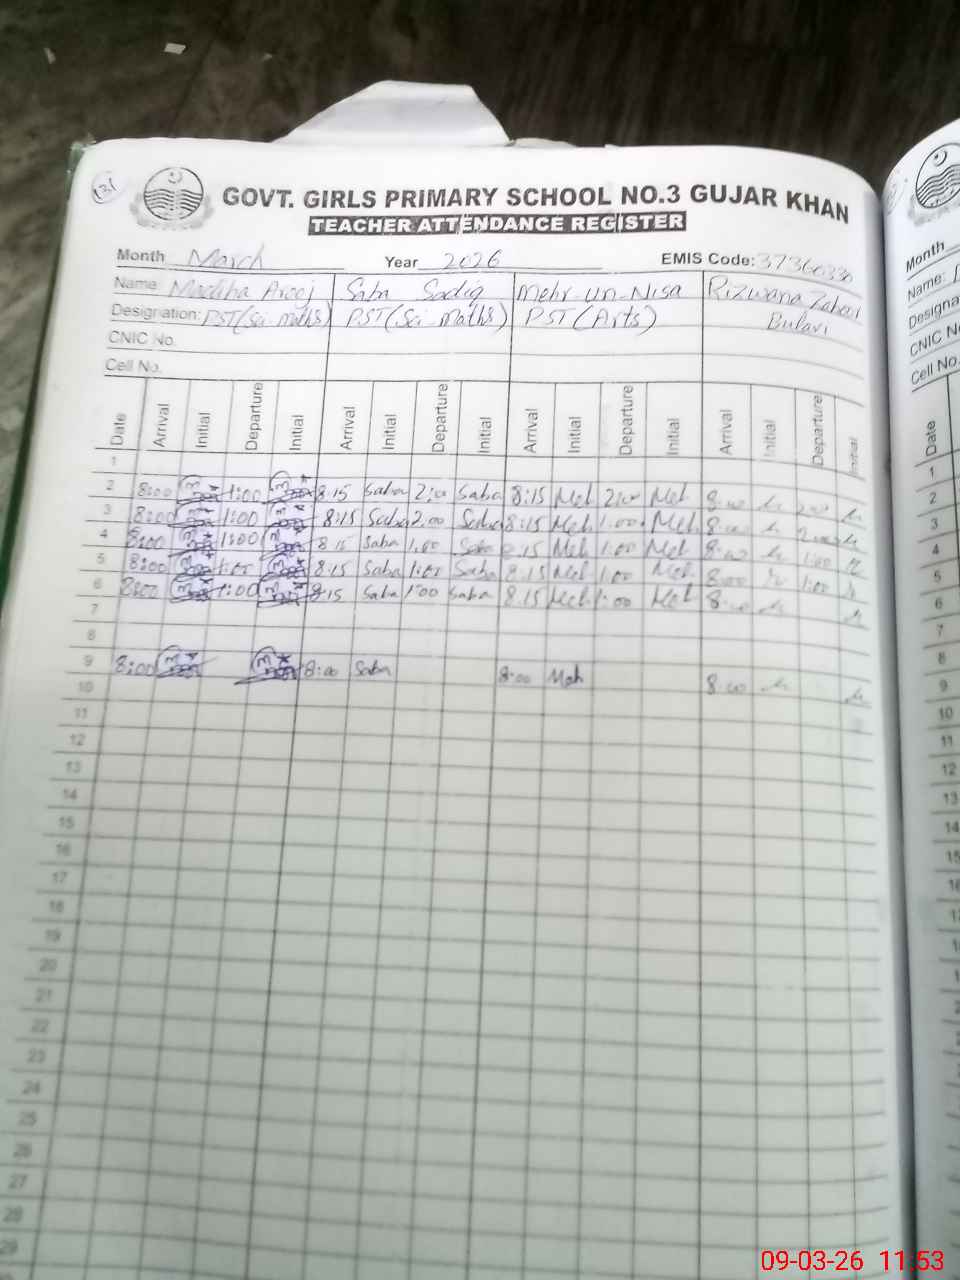 131
GOVT. GIRLS PRIMARY SCHOOL NO.3 GUJAR KHAN
TEACHER ATTENDANCE REGISTER
Month March Year 2026 EMIS Code: 37360330
Name: Madiha Arooj Saba Sadiq Mehr-un-Nisa Rizwana Zahoor
Designation: PST(Sci-Maths) PST(Sci-Maths) PST(Arts) Bulavi
CNIC No.
Cell No.
Date Arrival Initial Departure Initial Arrival Initial Departure Initial Arrival Initial Departure Initial Arrival Initial Departure Initial
1
2 8:00 1:00 8:15 Saba 2:00 Saba 8:15 Meh 2:00 Meh 8:00
3 8:00 1:00 8:15 Saba 2:00 Saba 8:15 Meh 1:00 Meh 8:00
4 8:00 1:00 8:15 Saba 1:00 Saba 8:15 Meh 1:00 Meh 8:00 1:00
5 8:00 1:00 8:15 Saba 1:00 Saba 8:15 Meh 1:00 Meh 8:00 1:00
6 8:00 1:00 8:15 Saba 1:00 Saba 8:15 Meh 1:00 Meh 8:00
7
8
9 8:00 8:00 Saba 8:00 Meh 8:00
10
11
12
13
14
15
16
17
18
19
20
21
22
23
24
25
26
27
28
29
Month
Name:
Designa
CNIC N
Cell No.
Date
1
2
3
4
5
6
7
8
9
10
11
12
13
14
15
09-03-26 11:53